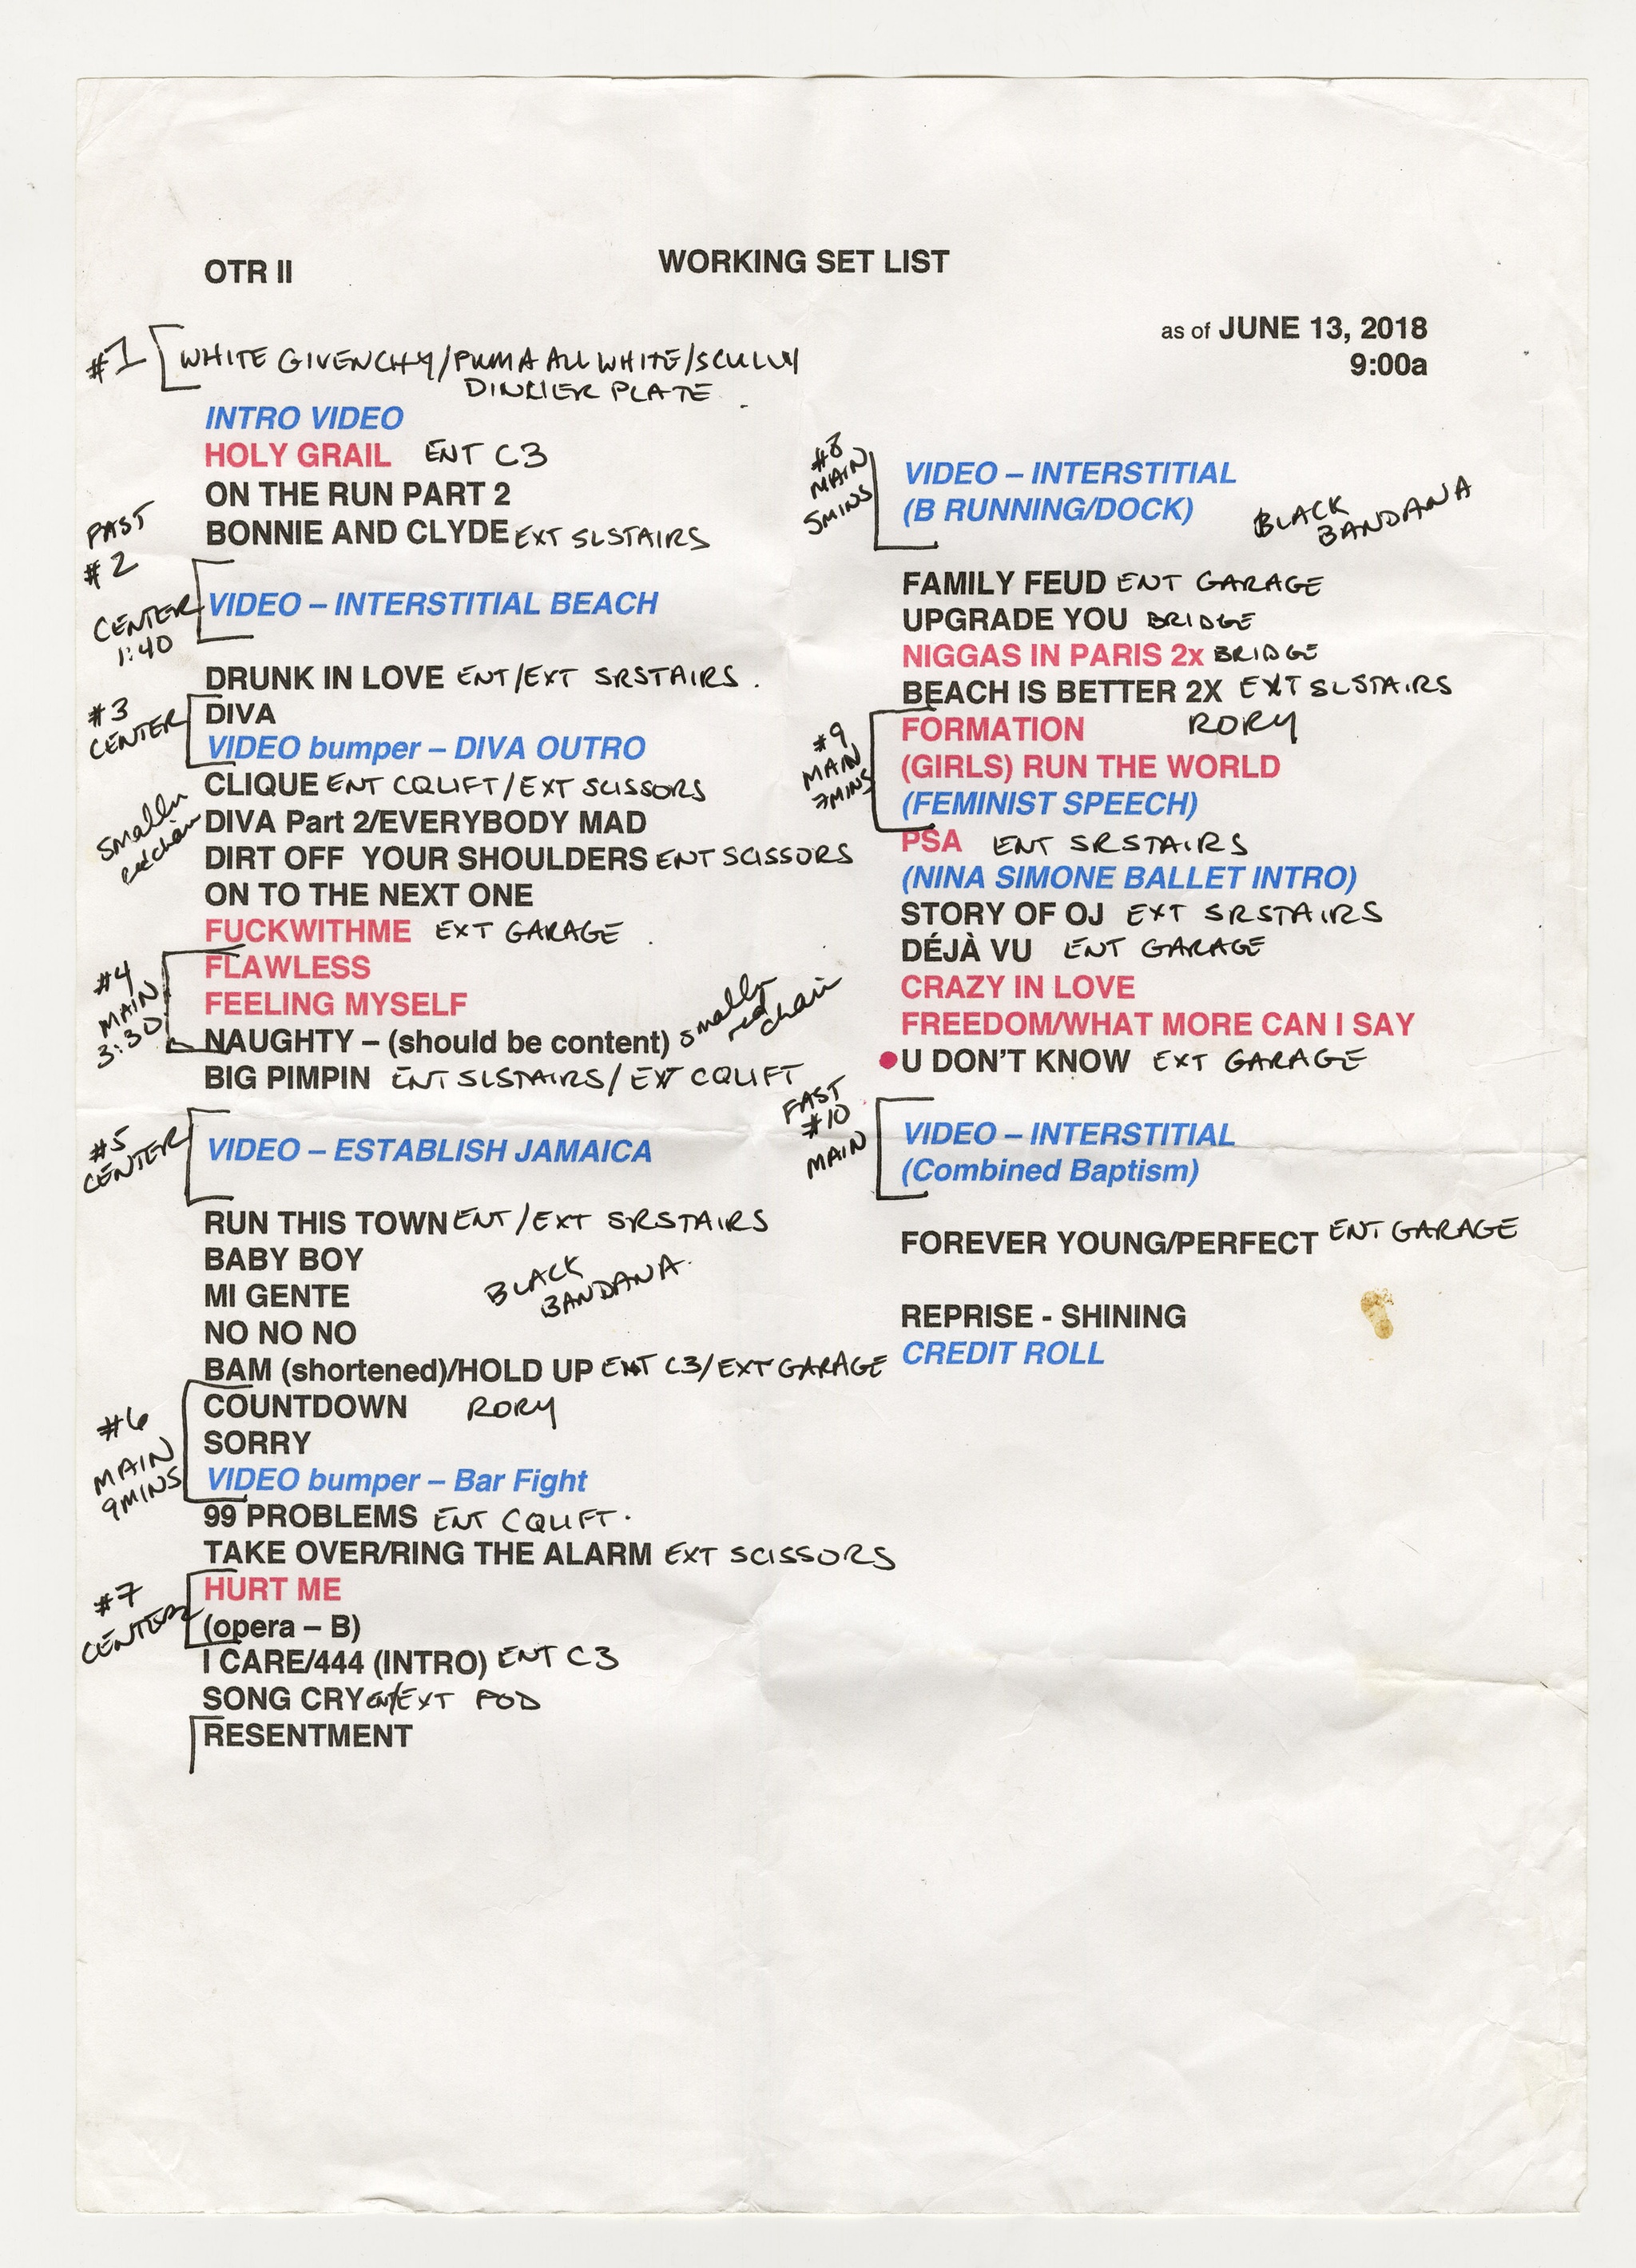 OTR II
WORKING SET LIST
as of JUNE 13, 2018
9:00a
#1
WHITE GIVENCHY/PUMA ALL WHITE/SCULLY
DINNER PLATE
INTRO VIDEO
HOLY GRAIL ENT C3
ON THE RUN PART 2
BONNIE AND CLYDE EXT SLSTAIRS
FAST
#2
CENTER
1:40
VIDEO – INTERSTITIAL BEACH
DRUNK IN LOVE ENT/EXT SRSTAIRS.
#3
CENTER
DIVA
VIDEO bumper – DIVA OUTRO
CLIQUE ENT CQLIFT/EXT SCISSORS
DIVA Part 2/EVERYBODY MAD
DIRT OFF YOUR SHOULDERS ENT SCISSORS
ON TO THE NEXT ONE
FUCKWITHME EXT GARAGE
#4
MAIN
3:30
FLAWLESS
FEELING MYSELF
NAUGHTY – (should be content)
red chain
BIG PIMPIN ENT SLSTAIRS/EXT CQLIFT
#5
CENTER
VIDEO – ESTABLISH JAMAICA
RUN THIS TOWN ENT/EXT SRSTAIRS
BABY BOY
MI GENTE
BLACK
BANDANA.
NO NO NO
BAM (shortened)/HOLD UP ENT C3/EXT GARAGE
#6
MAIN
9MINS
COUNTDOWN RORY
SORRY
VIDEO bumper – Bar Fight
99 PROBLEMS ENT CQLIFT.
TAKE OVER/RING THE ALARM EXT SCISSORS
#7
CENTER
HURT ME
(opera – B)
I CARE/444 (INTRO) ENT C3
SONG CRY ENT/EXT POD
RESENTMENT
#8
MAIN
5MINS
VIDEO – INTERSTITIAL
(B RUNNING/DOCK)
BLACK
BANDANA
FAMILY FEUD ENT GARAGE
UPGRADE YOU BRIDGE
NIGGAS IN PARIS 2x BRIDGE
BEACH IS BETTER 2X EXT SLSTAIRS
#9
MAIN
7MINS
FORMATION RORY
(GIRLS) RUN THE WORLD
(FEMINIST SPEECH)
PSA ENT SRSTAIRS
(NINA SIMONE BALLET INTRO)
STORY OF OJ EXT SRSTAIRS
DÉJÀ VU ENT GARAGE
CRAZY IN LOVE
FREEDOM/WHAT MORE CAN I SAY
U DON'T KNOW EXT GARAGE
FAST
#10
MAIN
VIDEO – INTERSTITIAL
(Combined Baptism)
FOREVER YOUNG/PERFECT ENT GARAGE
REPRISE - SHINING
CREDIT ROLL